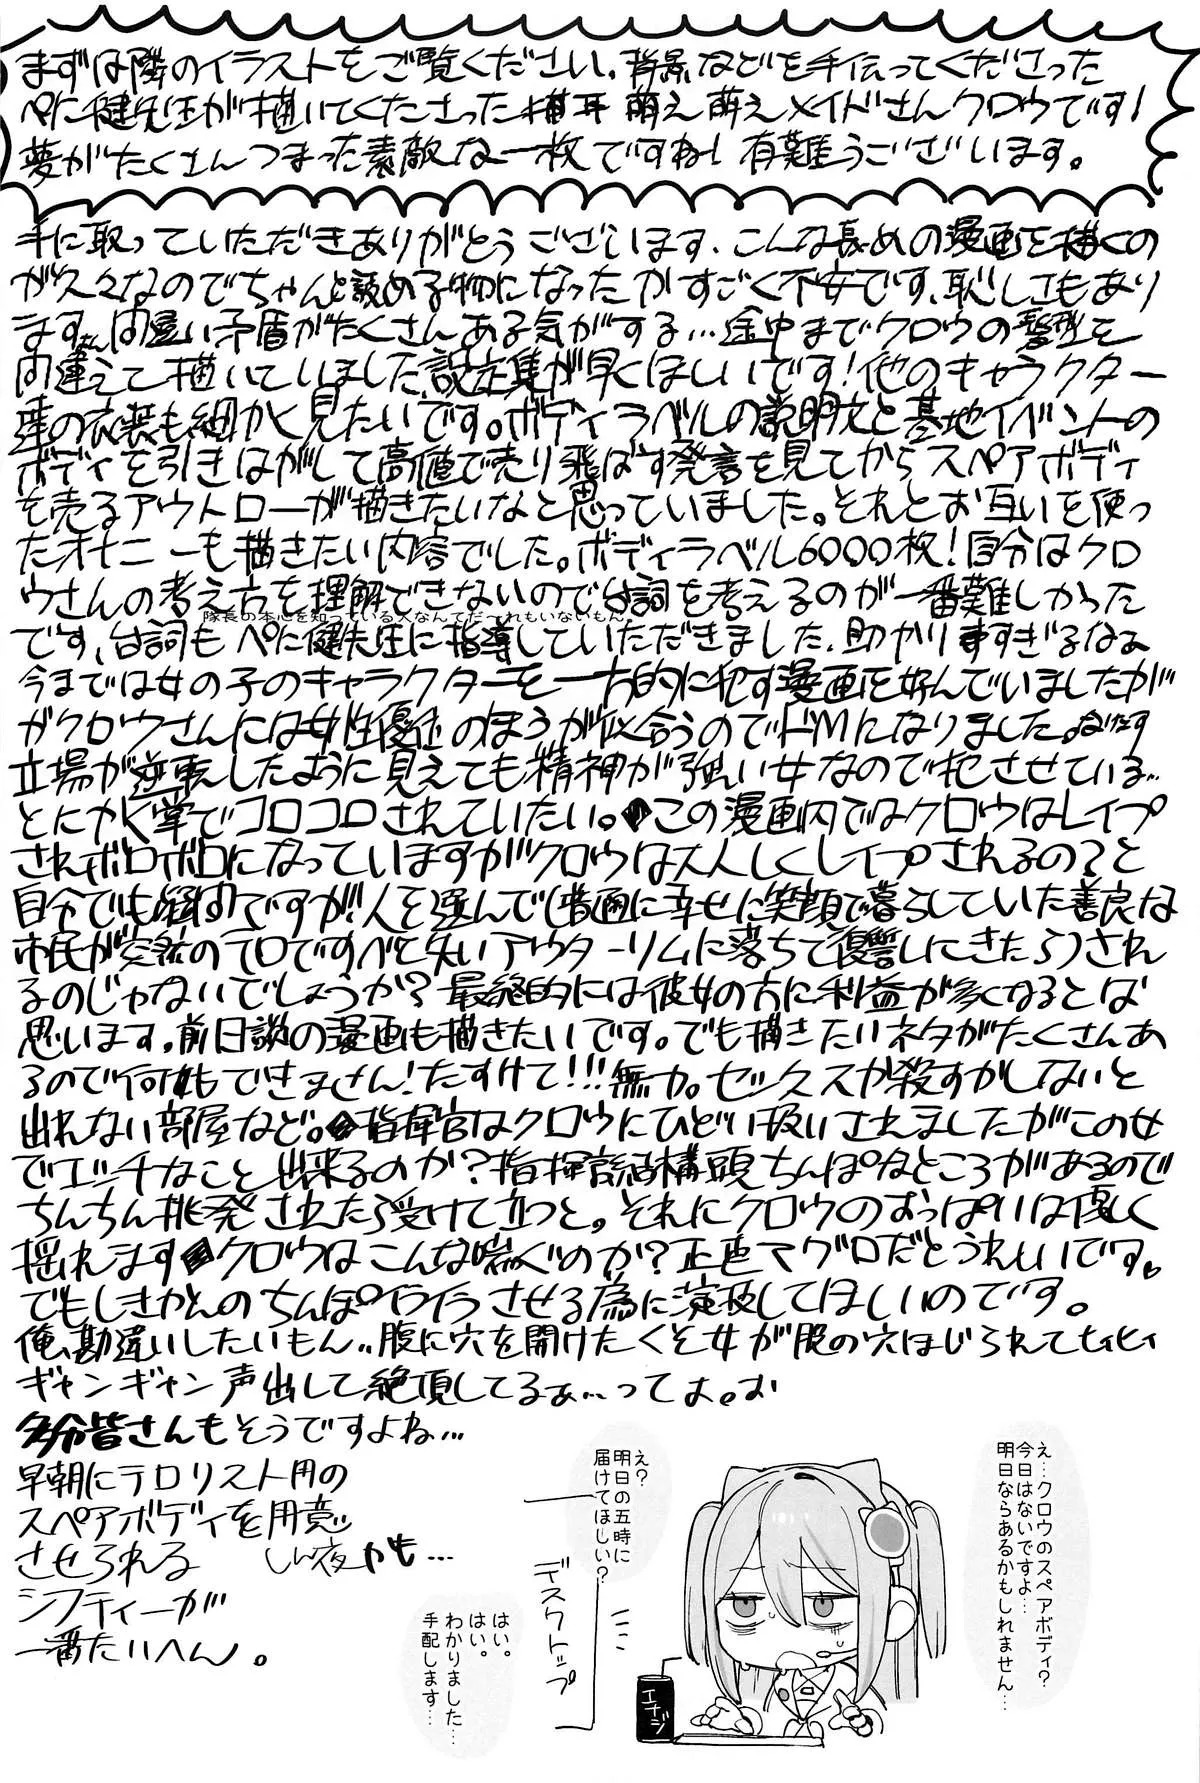 まずは隣のイラストをご覧ください。背景などを手伝ってくださった
ぺに健先生が描いてくださった猫耳 萌え萌えメイドさんクロウです!
夢がたくさんつまった素敵な一枚ですね! 有難うございます。
手に取っていただきありがとうございます、こんな長めの漫画を描くの
が久々なのでちゃんと読める物になったかすごく不安です、恥しさもあり
ます、間違い矛盾がたくさんある気がする…途中までクロウの髪型を
間違えて描いていました設定集が早くほしいです!他のキャラクター
達の衣装も細かく見たいです。ボディラベルの説明文と基地イベントの
ボディを引きはがして高値で売り飛ばす発言を見てからスペアボディ
を売るアウトローが描きたいなと思っていました。それとお互いを使っ
たオナニーも描きたい内容でした。ボディラベル6000枚!自分はクロ
ウさんの考え方を理解できないので台詞を考えるのが一番難しかった
隊長の本心を知っている人なんてだーれもいないもん。
です、台詞もぺに健先生に指導していただきました、助かりますすぎるなぁ
今までは女の子のキャラクターを一方的に犯す漫画を好んでいましたが
がクロウさんには女性優位のほうが似合うのでドMになりました。
立場が逆転したように見えても精神が強い女なので犯させている…
とにかく掌でコロコロされていたい。この漫画内ではクロウはレイプ
されボロボロになっていますがクロウは大人しくレイプされるの?と
自分でも疑問ですが人を選んで(普通に幸せに笑顔で暮らしていた善良な
市民が突然のテロですべてを失いアウターリムに落ちて復讐しにきたら)され
るのじゃないでしょうか?最終的には彼女の方に利益が多くなるとは
思います。前日談の漫画も描きたいです。でも描きたいネタがたくさんあ
るので何もできません!たすけて!!!無力。セックスか殺すかしないと
出れない部屋など。指揮官はクロウにひどい扱いされましたがこの女
でエッチなこと出来るのか?指揮官結構頭ちんぽなところがあるので
ちんちん挑発されたら受けて立つと。それにクロウのおっぱいは優しく
揺れます クロウはこんな喘ぐのか?正直マグロだとうれしいです。
でもしきかんのちんぽイライラさせる為に演技してほしいのです。
俺、勘違いしたいもん..腹に穴を開けたくそ女が股の穴ほじられてヒィヒィ
ギャンギャン声出して絶頂してるぁ…ってょ。お
多分皆さんもそうですよね…
早朝にテロリスト用の
スペアボディを用意
させられる しん夜かも…
シフティーが
一番たいへん。
え…クロウのスペアボディ?
今日はないですよ…
明日ならあるかもしれません…
え?
明日の五時に
届けてほしい?
はい。
はい。
わかりました…
手配します…
デスクトップ
エナジ